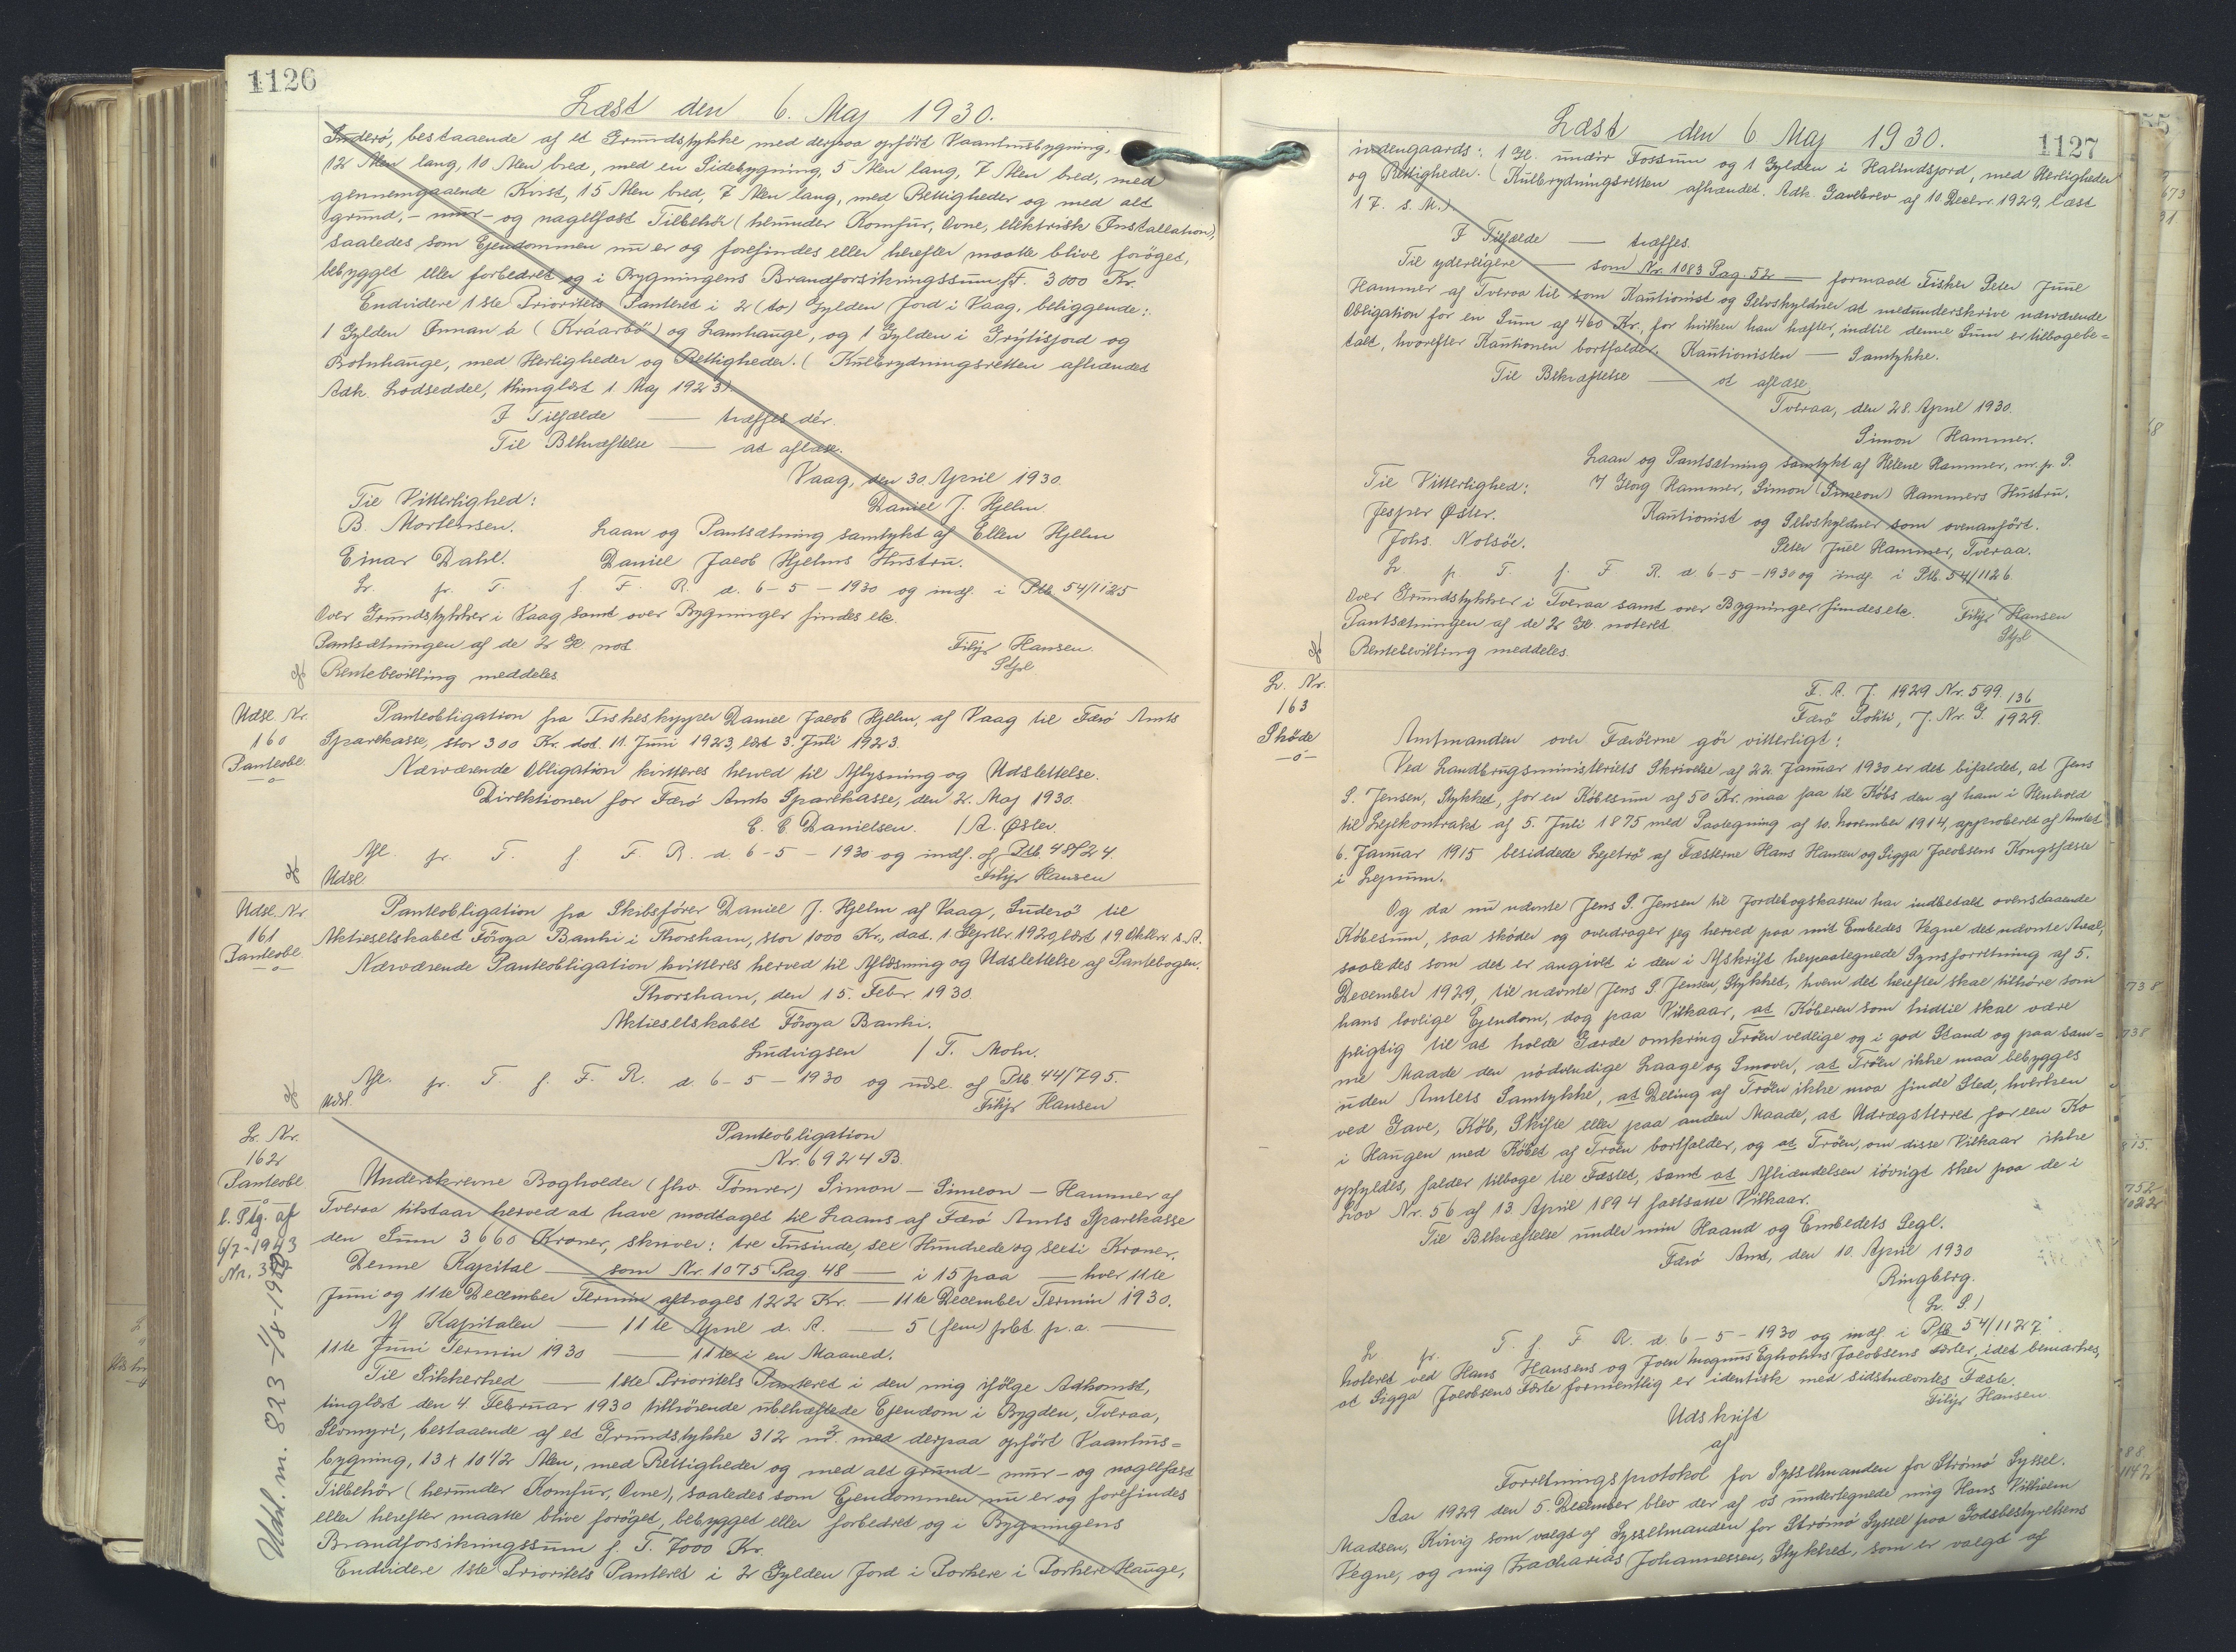 1126
Læst den 6. Maj 1930.
Suderö, bestaaende af et Grundstykke med derpaa opført Vaanhusbygning,
12 Alen lang, 10 Alen bred, med en Sidebygning, 5 Alen lang, 7 Alen bred, med
gennemgaaende Kvist, 15 Alen bred, 7 Alen lang, med Rettigheder og med alt
grund,- mur- og nagelfast Tilbehör (herunder Komfur, Ovne, elektrisk Installation),
saaledes som Ejendommen nu er og forefindes eller herefter maatte blive forøget,
bebygget eller forbedret og i Bygningens Brandforsikringssum f.T. 3000 Kr.
Endvidere 1ste Prioritets Panteret i 2 (to) Gylden Jord i Vaag, beliggende:
1 Gylden Innan á (Kráarbö) og Lamhauge, og 1 Gylden i Grýtisjord og
Botnhauge, med Herligheder og Rettigheder. (Kulbrydningsretten afhændet
Adk. Lodseddel, thinglæst 1. Maj 1923).
I Tilfælde — træffes dér.
Til Bekræftelse — at aflæse.
Vaag, den 30. April 1930.
Til Vitterlighed: Daniel J. Hjelm.
B. Mortensen. Laan og Pantsætning samtykt af Ellen Hjelm
Einar Dahl. Daniel Jacob Hjelms Hustru.
Lr. pr. T. f. F. R. d. 6-5-1930 og indf. i Ptb. 54/1125
Over Grundstykker i Vaag samt over Bygninger findes etc.
Pantsætningen af de 2 Gl. not. Filip Hansen.
Rentebevilling meddeles Stfl
Udsl. Nr. 160 Panteobl.
Panteobligation fra Fiskeskipper Daniel Jacob Hjelm, af Vaag til Færö Amts
Sparekasse, stor 300 Kr. dat. 11. Juni 1923, læst 3. Juli 1923.
Nærværende Obligation kvitteres herved til Aflysning og Udslettelse.
Direktionen for Færö Amts Sparekasse, den 2. Maj 1930.
C. C. Danielsen. / A. Øster.
Afl. pr. T. f. F. R. d. 6-5-1930 og indf. af Ptb. 48/24.
Udsl. Filip Hansen
Udsl. Nr. 161 Panteobl.
Panteobligation fra Skibsfører Daniel J. Hjelm af Vaag, Suderö til
Aktieselskabet Föroya Banki i Thorshavn, stor 1000 Kr., dat. 1. Septbr. 1929, læst 19. Oktbr. s. A.
Nærværende Panteobligation kvitteres herved til Aflæsning og Udslettelse af Pantebogen.
Thorshavn, den 15. Febr. 1930.
Aktieselskabet Föroya Banki.
Ludvigsen / T. Mohr.
Afl. pr. T. f. F. R. d. 6-5-1930 og udsl. af Ptb. 44/795.
Udsl. Filip Hansen
Lr. Nr. 162 Panteobl
l. Ptg. af
6/7-1943
Nr. 3
Udsl. m. 823 - 11/8-1950
Panteobligation
Nr. 6924 B.
Underskrevne Bogholder (fhv. Tömrer) Simon - Simeon - Hammer af
Tveraa tilstaar herved at have modtaget til Laans af Færö Amts Sparekasse
den Sum 3660 Kroner, skriver: tre Tusinde, sex Hundrede og seeti Kroner.
Denne Kapital — som Nr. 1075 Pag 48 — i 15 paa — hver 11te
Juni og 11te December Termin afdrages 122 Kr. — 11te December Termin 1930.
Af Kapitalen — 11te April d. A. — 5 (fem) pCt. p. a. —
11te Juni Termin 1930 — 11te i en Maaned.
Til Sikkerhed — 1ste Prioritets Panteret i den mig ifölge Adkomst,
tinglæst den 4 Februar 1930 tilhörende ubehæftede Ejendom i Bygden, Tveraa,
Slvmyri, bestaaende af et Grundstykke 312 m². med derpaa opført Vaanhus=
bygning, 13 x 10 1/2 Alen, med Rettigheder og med alt grund- mur- og nagelfast
Tilbehör (herunder Komfur, Ovne), saaledes som Ejendommen nu er og forefindes
eller herefter maatte blive forøget, bebygget eller forbedret og i Bygningens
Brandforsikringssum f. T. 7000 Kr.
Endvidere 1ste Prioritets Panteret i 2 Gylden Jord i Porkere i Porkere Hauge,
1127
Læst den 6 Maj 1930.
indengaards: 1 Gl. undir Fossum og 1 Gylden i Halindsjord, med Herligheder
og Rettigheder. (Kulbrydningsretten afhændet. Adk. Gavebrev af 10. Decbr. 1929, læst
17. s. M.)
I Tilfælde — træffes.
Til yderligere — som Nr. 1083 Pag. 52 — formaaet Fisker Peter Juul
Hammer af Tveraa til som Kautionist og Selvskyldner at medunderskrive nærværende
Obligation for en Sum af 460 Kr., for hvilken han hæfter, indtil denne Sum er tilbagebe=
talt, hvorefter Kautionen bortfalder. Kautionisten — Samtykke.
Til Bekræftelse — at aflæse.
Tveraa, den 28. April 1930.
Simon Hammer.
Laan og Pantsætning samtykt af Helene Hammer, m. f. P.
Til Vitterlighed: / Georg Hammer, Simon (Simeon) Hammers Hustru.
Jesper Øster. Kautionist og Selvskyldner som ovenanført.
Johs. Nolsöe. Peter Juel Hammer, Tveraa.
Lr pr. T. f. F R. d. 6-5-1930 og indf. i Ptb. 54/1126.
Over Grundstykker i Tveraa samt over Bygninger findes etc. Filip Hansen
Pantsætningen af de 2 Gl. noteret. Stfl
Rentebevilling meddeles.
Lr. Nr. 163 Skøde
F. A. J. 1929 Nr. 599
Færö Politi, J. Nr. G. 136/1929.
Amtmanden over Færöerne gör vitterligt:
Ved Landbrugsministeriets Skrivelse af 22. Januar 1930 er det bifaldet, at Jens
S. Jensen, Stykket, for en Købesum af 50 Kr. maa faa til Købs den af ham i Henhold
til Lejekontrakt af 5. Juli 1875 med Paategning af 10. November 1914, approberet af Amtet
6. Januar 1915 besiddede Lejetrö af Fæsterne Hans Hansen og Sigga Jacobsens Kongsfæste
i Lejnum.
Og da nu nævnte Jens S. Jensen til Jordebogskassen har indbetalt ovenstaaende
Købesum, saa skøder og overdrager jeg herved paa mit Embedes Vegne det nævnte Areal,
saaledes som det er angivet i den i Afskrift herpaategnede Synsforretning af 5.
December 1929, til nævnte Jens S. Jensen, Stykket, hvem det herefter skal tilhøre som
hans lovlige Ejendom, dog paa Vilkaar, at Køberen som hidtil skal være
pligtig til at holde Gærde omkring Tröen vedlige og i god Stand og paa sam=
me Maade den nødvendige Laage og Smover, at Tröen ikke maa bebygges
uden Amtets Samtykke, at Deling af Tröen ikke maa finde Sted, hverken
ved Gave, Köb, Skifte eller paa anden Maade, at Udrægsterret for een Ko
i Haugen med Købet af Tröen bortfalder, og at Tröen, om disse Vilkaar ikke
opfyldes, falder tilbage til Fæstet, samt at Afhændelsen iövrigt sker paa de i
Lov Nr. 56 af 13. April 1894 fastsatte Vilkaar.
Til Bekræftelse under min Haand og Embedets Segl.
Færö Amt, den 10. April 1930
Ringberg.
(L. S.)
Lr pr. T. f. F R. d. 6-5-1930 og indf. i Ptb 54/1127.
Noteret ved Hans Hansens og Joen Magnus Egholms Jacobsens Fæster, idet bemærkes,
at Sigga Jacobsens Fæste formentlig er identisk med sidstnævntes Fæste.
Filip Hansen
Udskrift
af
Forretningsprotokol for Sysselmanden for Strömö Syssel.
Aar 1929 den 5. December blev der af os undertegnede mig Hans Vilhelm
Madsen, Kvivig som valgt af Sysselmanden for Strömö Syssel paa Godsbestyrelsens
Vegne, og mig Zacharias Johannessen, Stykket, som er valgt af